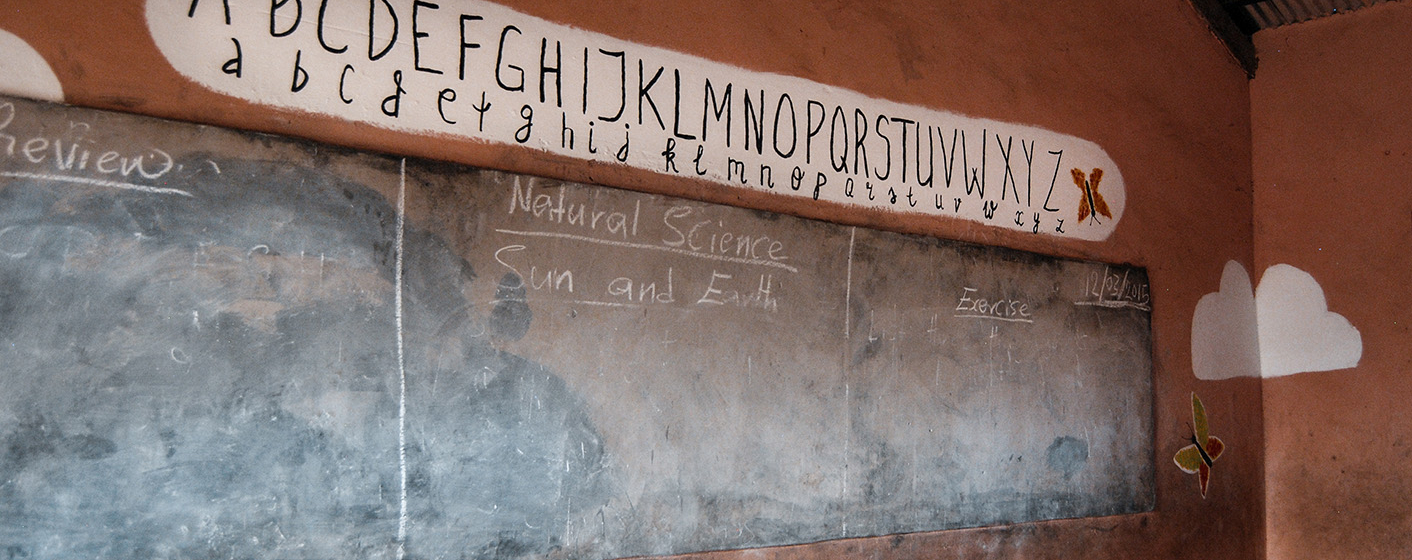 A B C D E F G H I J K L M N O P Q R S T U V W X Y Z
a b c d e f g h i j k l m n o p q r s t u v w x y z
Preview
Natural Science
Sun and Earth
Exercise
12/03/2015